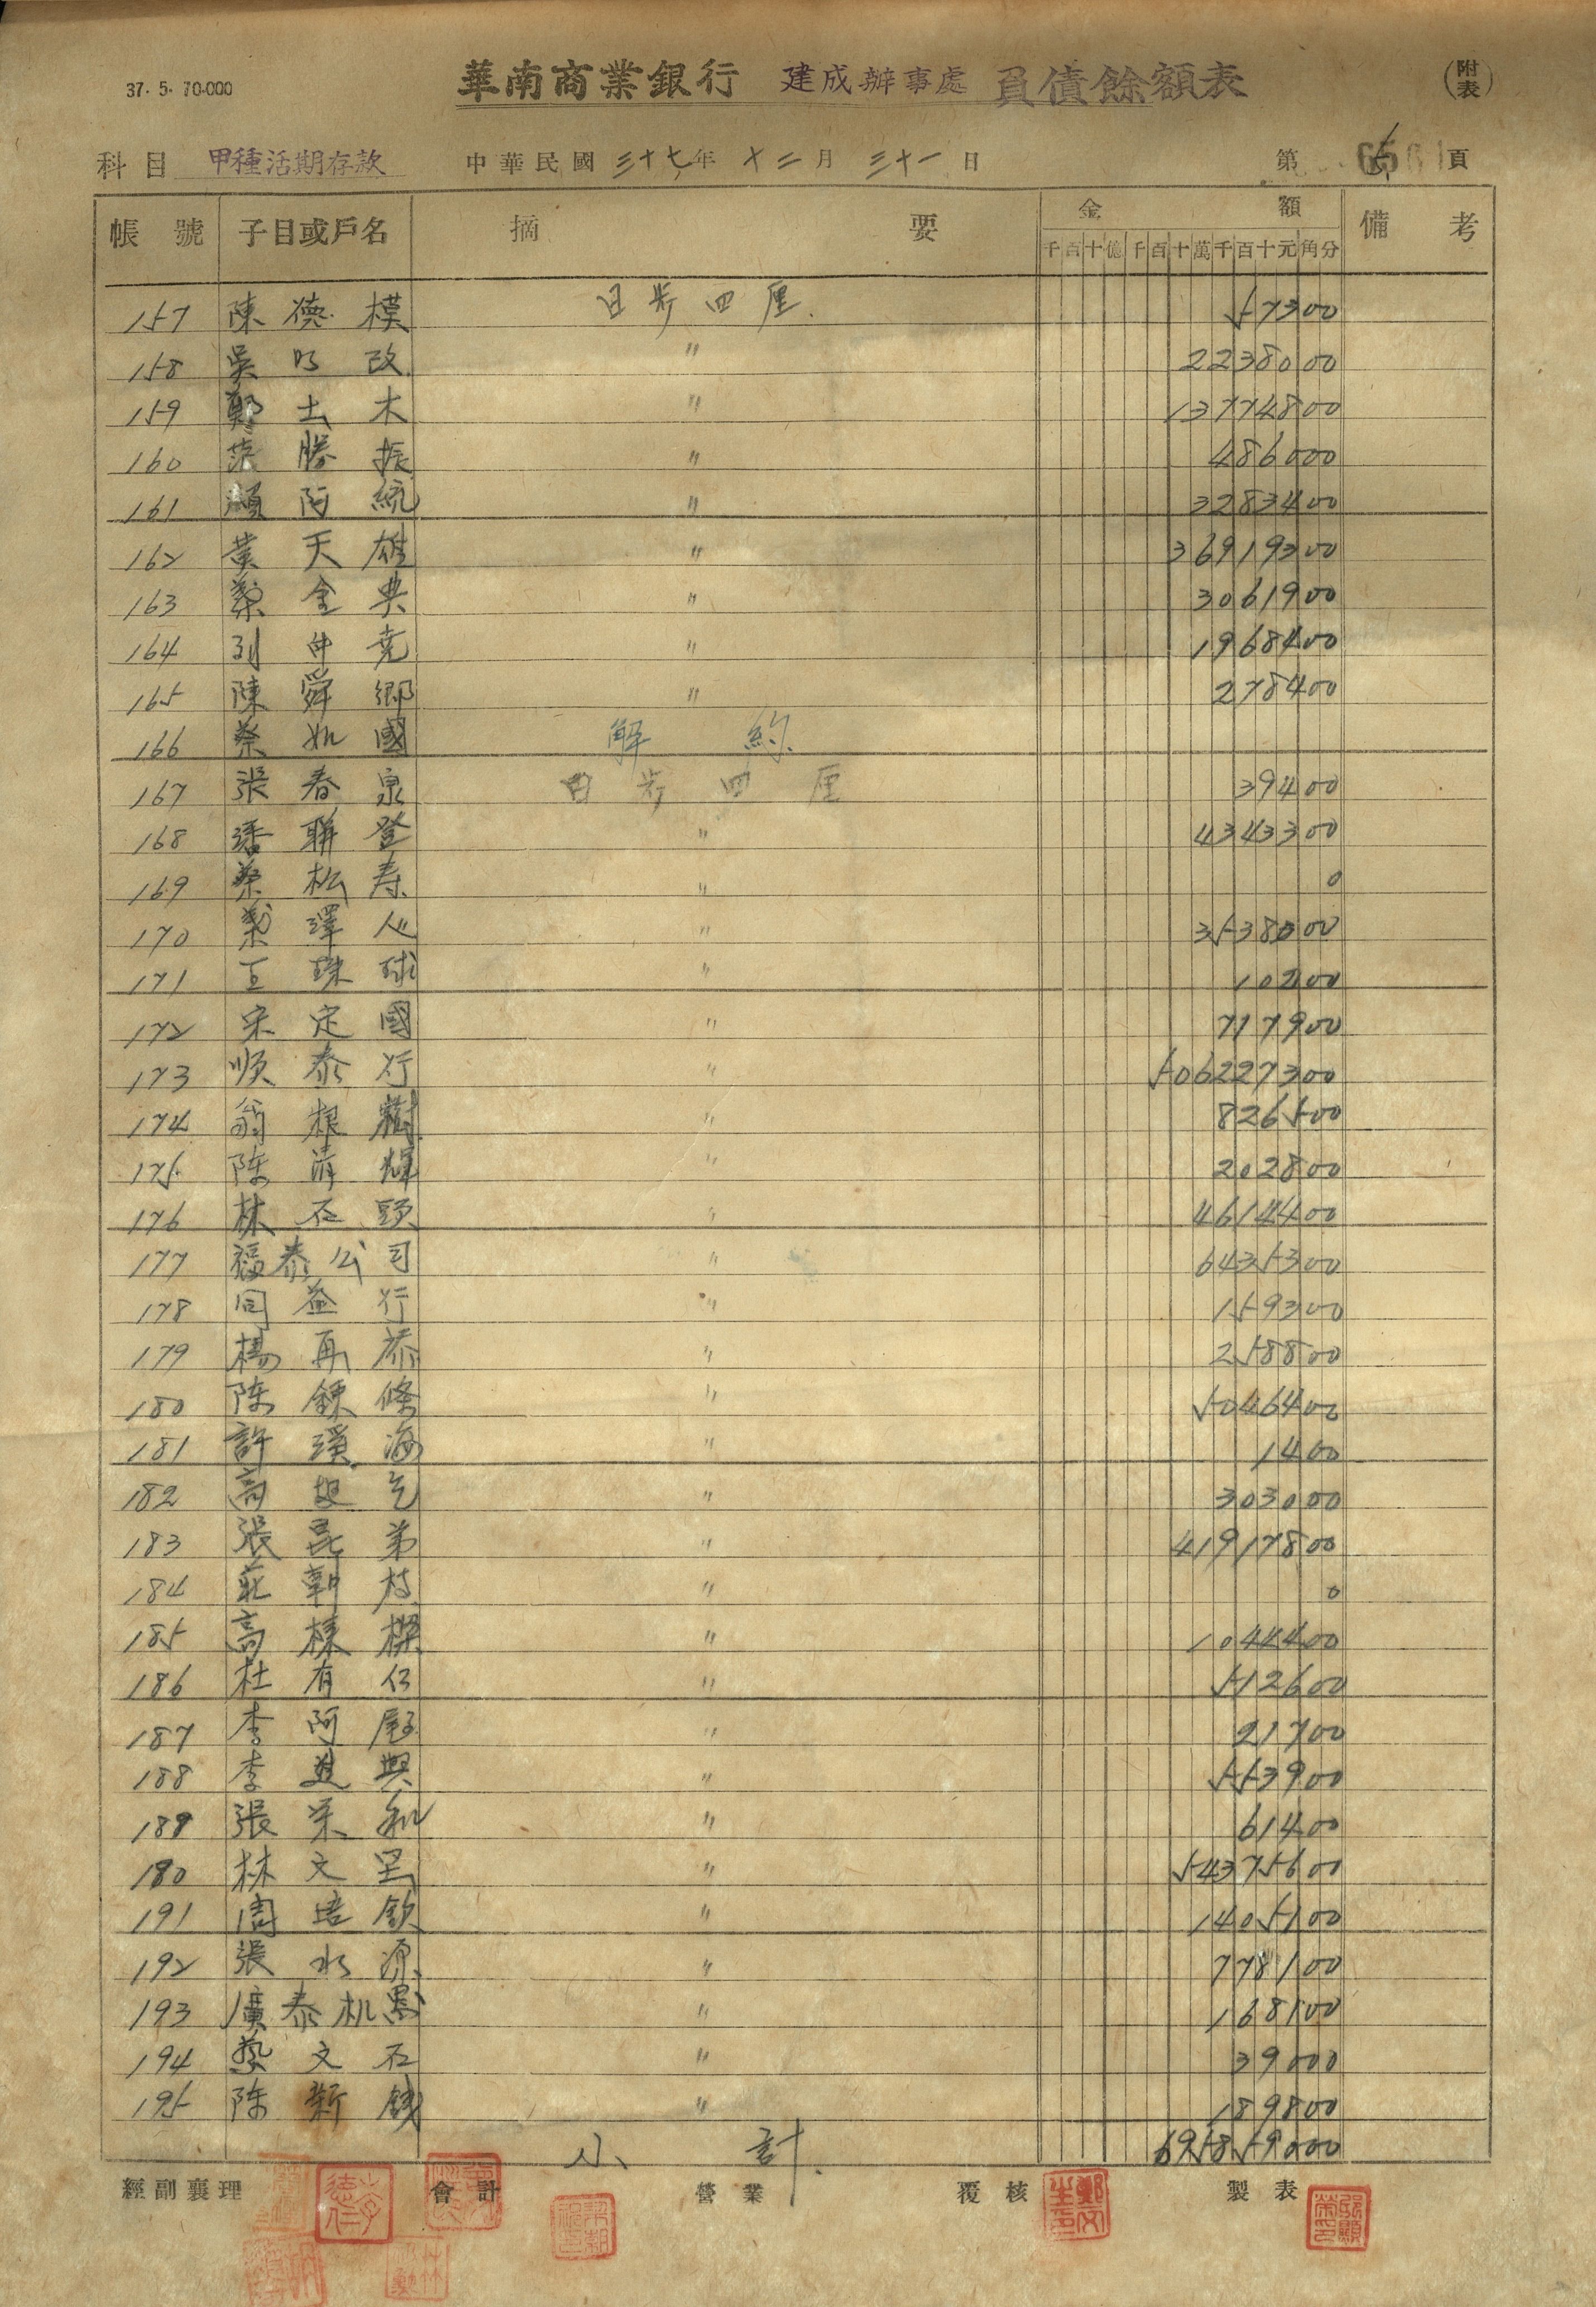 37. 5. 70.000
華南商業銀行 建成辦事處 負債餘額表 (附表)
科目 甲種活期存款 中華民國三十七年十二月三十一日 第 65 頁
帳號 子目或戶名 摘要 金額 備考
千百十億千百十萬千百十元角分
157 陳德模 日步四厘 57300
158 吳明改 〃 2238000
159 鄭土木 〃 13774800
160 葉勝振 〃 486000
161 顏阿統 〃 3283400
162 黃天雄 〃 36919300
163 蔡金典 〃 3061900
164 〃 1968400
165 陳舜鄉 〃 278400
166 蔡如國 解約
167 張春泉 日步四厘 39400
168 潘聯登 〃 4343300
169 蔡松寿 〃 0
170 澤 〃 3538000
171 王珠球 〃 10200
172 宋定國 〃 717900
173 順泰行 〃 506227300
174 翁根樹 〃 826500
175 陈清輝 〃 202800
176 林石頭 〃 4614400
177 福泰公司 〃 6435300
178 同益行 〃 159300
179 楊再恭 〃 258800
180 陈錬條 〃 5046400
181 許漢海 〃 1400
182 高 〃 303000
183 張昆弟 〃 41917800
184 莊朝枝 〃 0
185 高樑 〃 1044400
186 杜有 〃 512600
187 李阿 〃 21700
188 李進興 〃 553900
189 張栄和 〃 61400
180 林文 〃 54375600
191 周培欽 〃 1405100
192 張水源 〃 778100
193 廣泰机器 〃 168100
194 文石 〃 39000
195 陈新錢 〃 189800
小計 695859000
經副襄理 會計 營業 覆核 製表